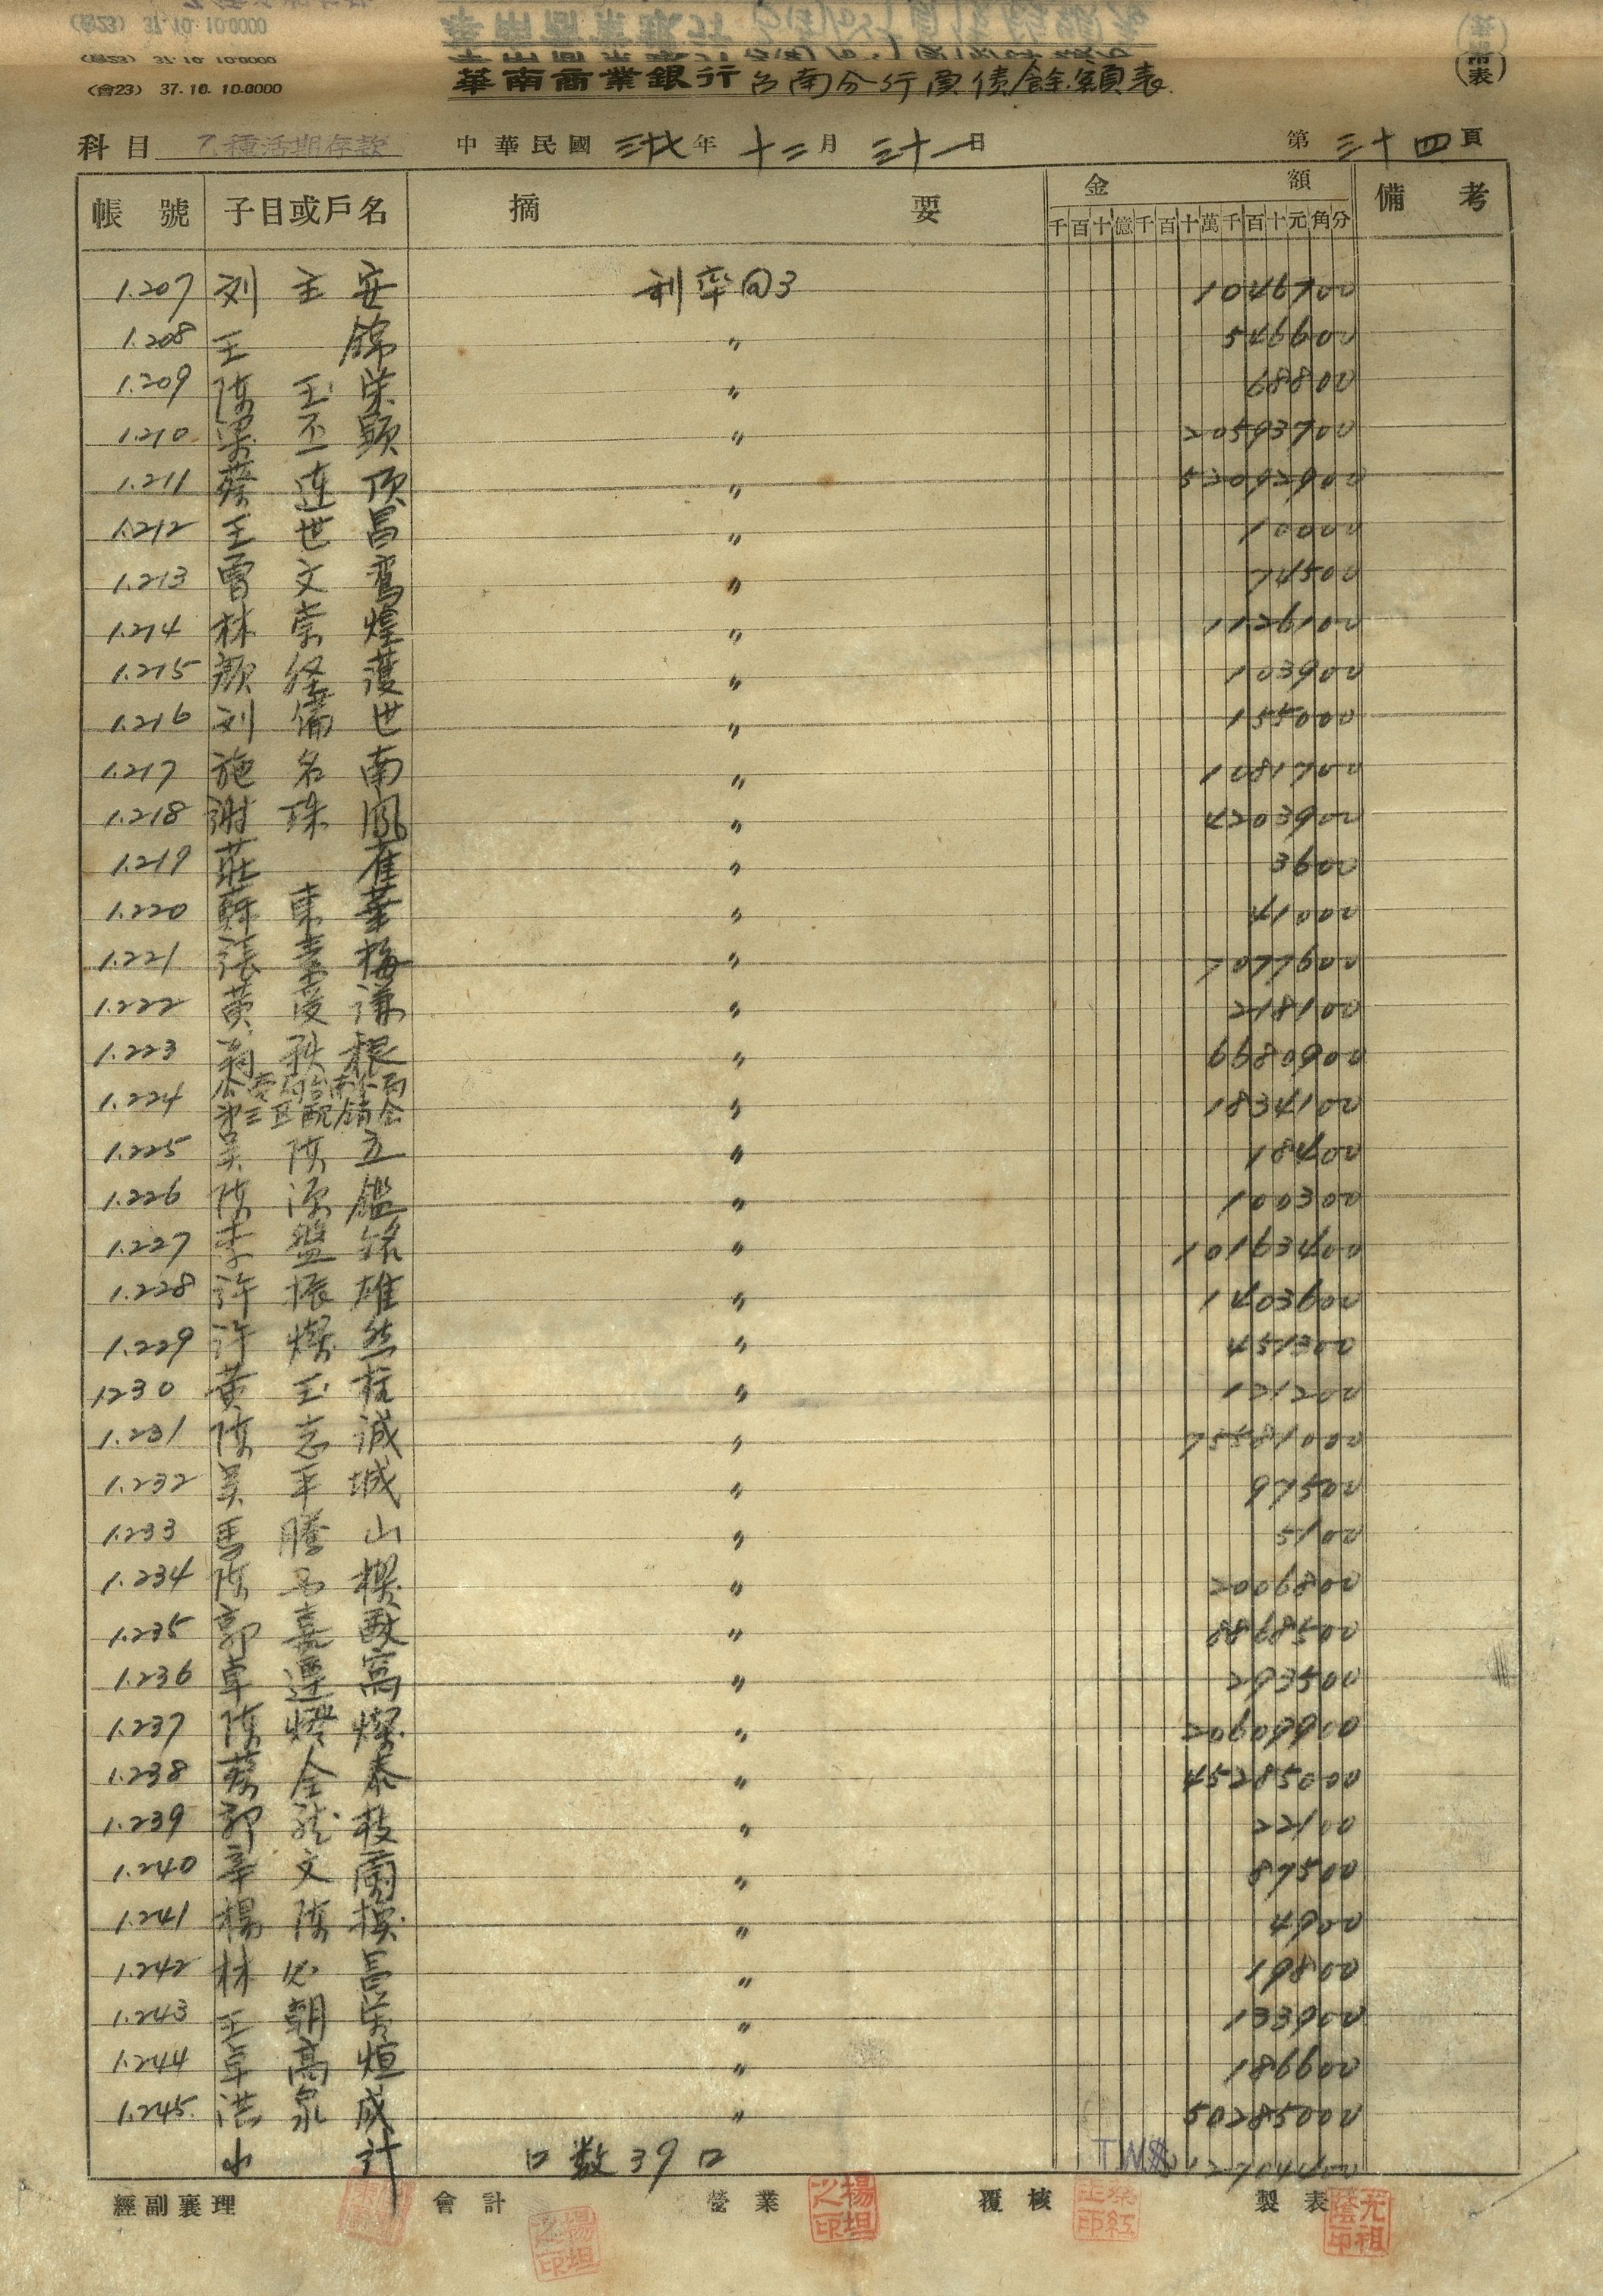 (會23) 37.10.10.0000
華南商業銀行台南分行負債餘額表
科目 乙種活期存款 中華民國 三十七年 十二月 三十一日 第 三十四 頁
帳號 子目或戶名 摘要 金額 備考
千百十億千百十萬千百十元角分
1.207 刘主安 利率@3 1046700
1.208 王錦 〃 546600
1.209 陳玉榮 〃 68800
1.210 梁丕顕 〃 20593700
1.211 蔡连顶 〃 52092900
1.212 王世昌 〃 10000
1.213 曹文鸾 〃 74500
1.214 林崇煌 〃 1126100
1.215 顏经護 〃 103900
1.216 刘儒世 〃 155000
1.217 施名南 〃 1081700
1.218 謝珠鳳 〃 4203900
1.219 莊雀 〃 3600
1.220 蘇東華 〃 41000
1.221 張幸梅 〃 7077600
1.222 黄受謙 〃 218100
1.223 翁秋根 〃 6680900
1.224 第三区配銷会 〃 1834100
1.225 吴陈立 〃 18400
1.226 陈源鑑 〃 100300
1.227 李盤銘 〃 10163400
1.228 許振雄 〃 1403600
1.229 許燦然 〃 451300
1230 黄玉柱 〃 121200
1.231 陈志誠 〃 75581000
1.232 吴平城 〃 97500
1.233 馬騰山 〃 5100
1.234 陈 模 〃 2006800
1.235 郭嘉猷 〃 8868500
1.236 卓還窩 〃 293500
1.237 陈燈燦 〃 20609900
1.238 蔡全泰 〃 45285000
1.239 郭龙枝 〃 22100
1.240 辛文蘭 〃 87500
1.241 楊陈模 〃 4900
1.242 林必昌 〃 19800
1.243 王朝荣 〃 133900
1.244 卓高烜 〃 186600
1.245 洪泉成 〃 50285000
小計 口数39口 TW$ 312704400
經副襄理 會計 營業 覆核 製表
楊坦之印 楊坦之印